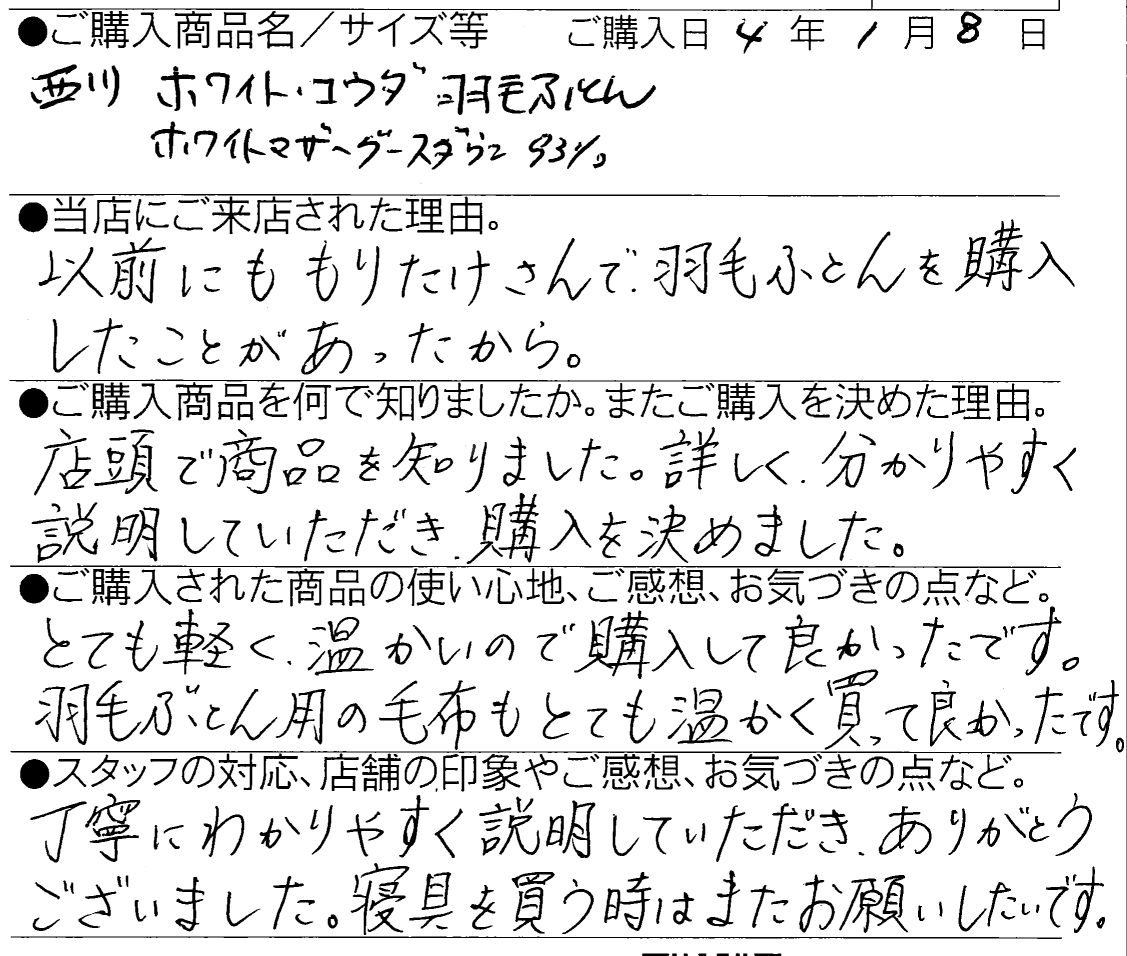 ●ご購入商品名／サイズ等 ご購入日 4 年 1 月 8 日
西川 ホワイト・コウダ 羽毛ふとん
ホワイトマザーグースダウン 93%
●当店にご来店された理由。
以前にももりたけさんで、羽毛ふとんを購入
したことがあったから。
●ご購入商品を何で知りましたか。またご購入を決めた理由。
店頭で商品を知りました。詳しく、分かりやすく
説明していただき、購入を決めました。
●ご購入された商品の使い心地、ご感想、お気づきの点など。
とても軽く、温かいので購入して良かったです。
羽毛ぶとん用の毛布もとても温かく買って良かったです。
●スタッフの対応、店舗の印象やご感想、お気づきの点など。
丁寧にわかりやすく説明していただき、ありがとう
ございました。寝具を買う時はまたお願いしたいです。